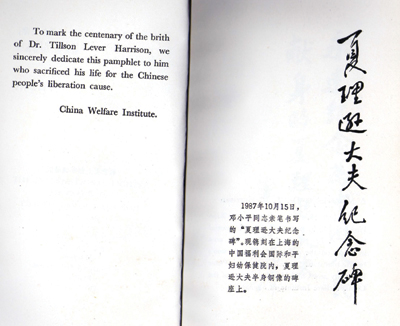 To mark the centenary of the brith
of Dr. Tillson Lever Harrison, we
sincerely dedicate this pamphlet to him
who sacrificed his life for the Chinese
people's liberation cause.
China Welfare Institute.
夏理逊大夫纪念碑
1987年10月15日,
邓小平同志亲笔书写
的“夏理逊大夫纪念
碑”。现镌刻在上海的
中国福利会国际和平
妇幼保健院内,夏理
逊大夫半身铜像的碑
座上。